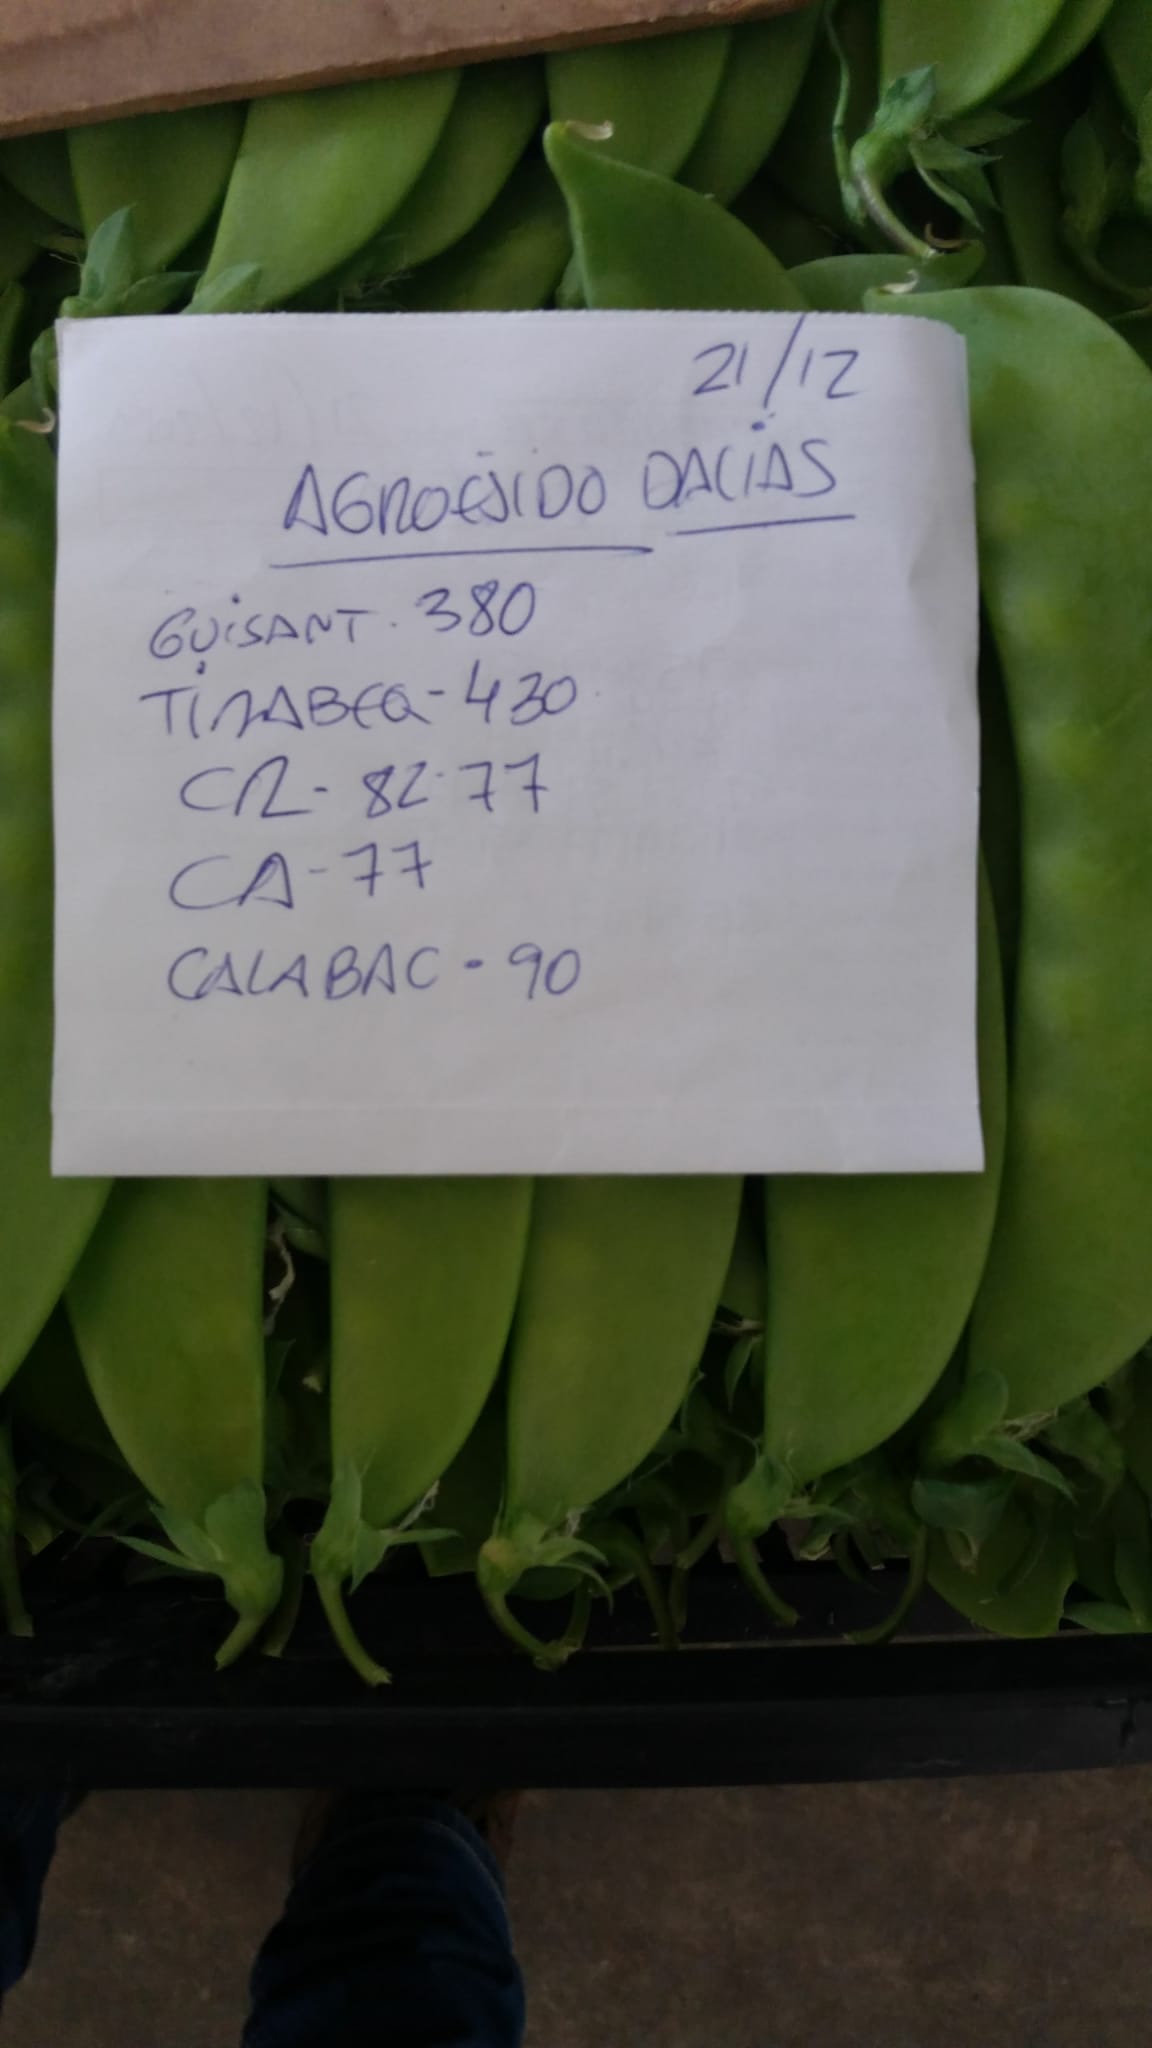 21/12
AGROEJIDO DALÍAS
GUISANT. 380
TIRABEQ - 430
CR - 82-77
CA - 77
CALABAC - 90